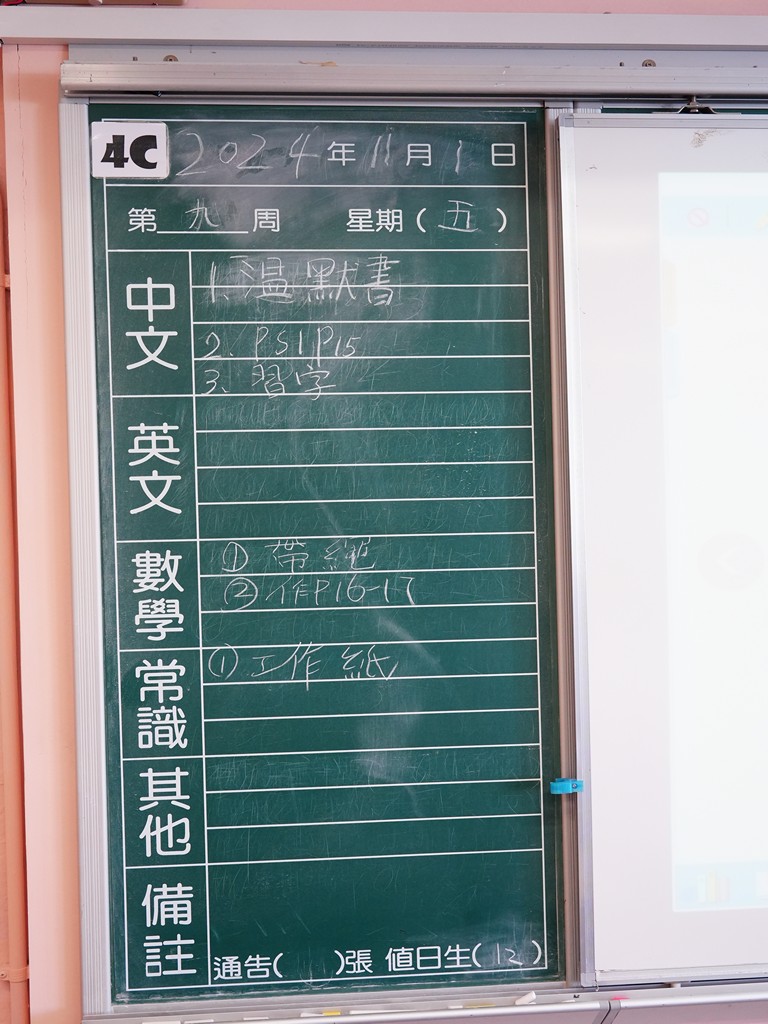 4C 2024年11月1日
第九周 星期(五)
中文
1. 温默書
2. PS1 P15
3. 習字
英文
數學
① 帶繩
② 作P16-17
常識
① 工作紙
其他
備註
通告( )張 值日生(12)